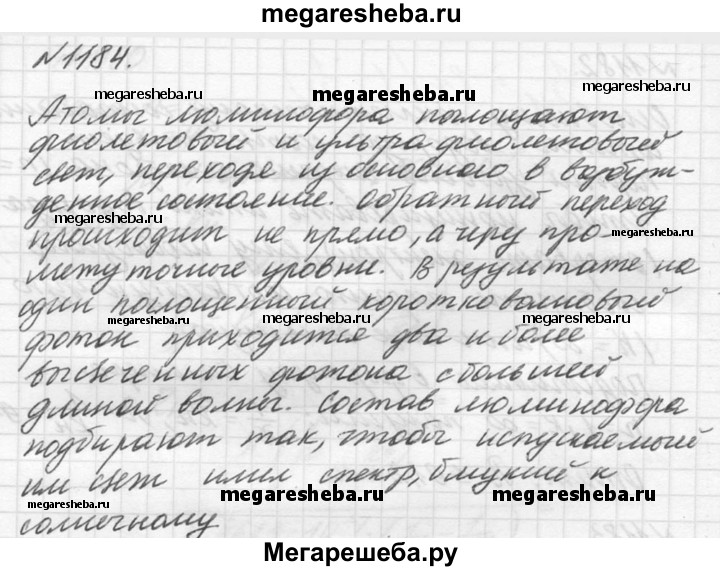 megaresheba.ru
N1184.
megaresheba.ru megaresheba.ru
Атомы люминофора поглощают
фиолетовый и ультрафиолетовый
свет, переходя из основного в возбуж-
денное состояние. Обратный переход
megaresheba.ru
происходит не прямо, а через про- megaresheba.ru
межуточные уровни. В результате на
один поглощенный коротковолновый
megaresheba.ru megaresheba.ru megaresheba.ru
фотон приходится два и более
высвеченных фотона с большей
длиной волны. Состав люминофора
подбирают так, чтобы испускаемый
им свет имел спектр, близкий к
megaresheba.ru megaresheba.ru megaresheba.ru
солнечному
Мегарешеба.ру